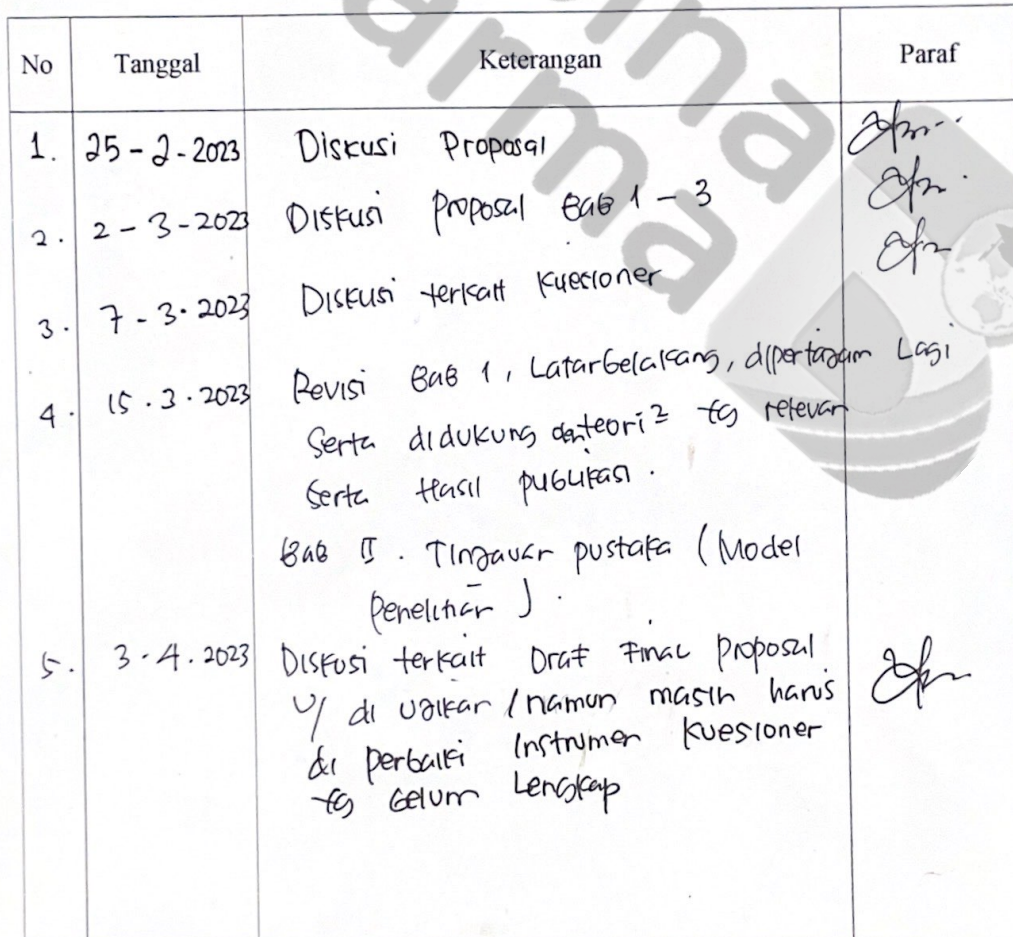 No Tanggal Keterangan Paraf
1. 25-2-2023 Diskusi Proposal
2. 2-3-2023 Diskusi Proposal Bab 1-3
3. 7-3-2023 Diskusi terkait Kuesioner
4. 15.3.2023 Revisi Bab 1, Latarbelakang, dipertajam Lagi
Serta didukung dgn teori² yg relevan
Serta Hasil publikasi.
Bab II. Tinjauan pustaka (Model
penelitian).
5. 3.4.2023 Diskusi terkait Draf Final Proposal
u/ di ujikan / namun masih harus
di perbaiki Instrumen Kuesioner
yg belum Lengkap
bina
darma